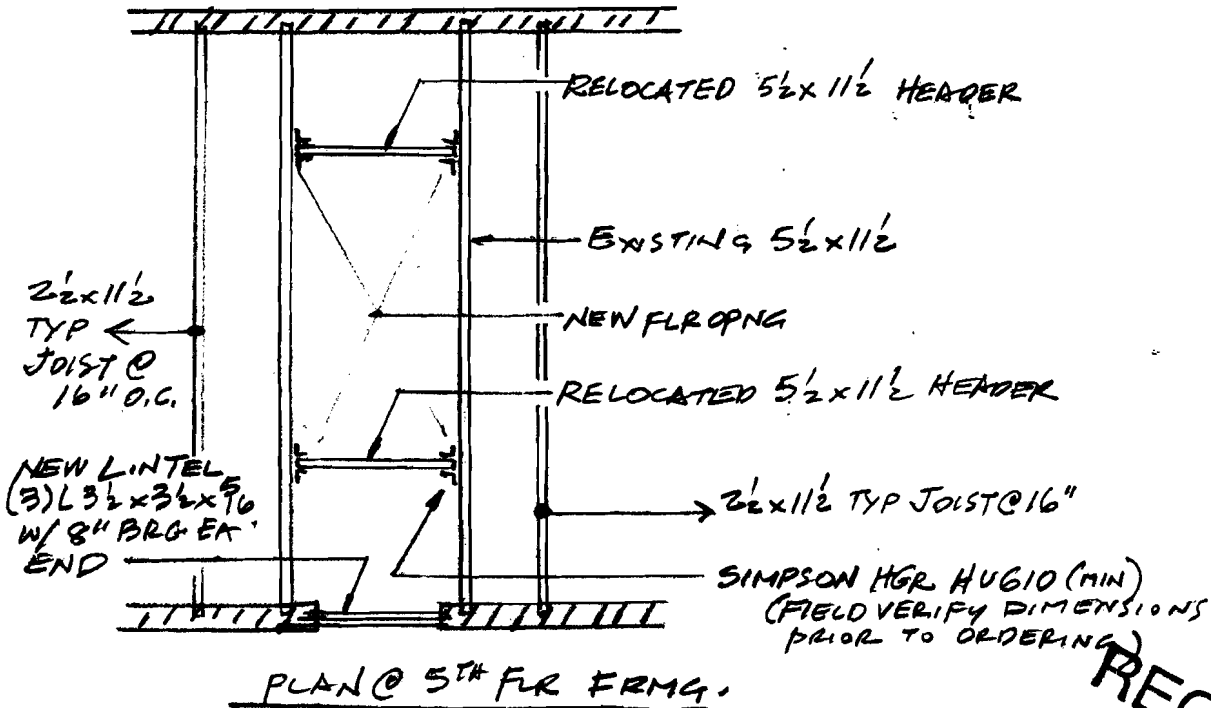 RELOCATED 5½ x 11½ HEADER
EXISTING 5½ x 11½
NEW FLR OPNG
2½ x 11½
TYP
JOIST @
16" O.C.
RELOCATED 5½ x 11½ HEADER
NEW LINTEL
(3) L 3½ x 3½ x 5/16
W/ 8" BRG EA.
END
2½ x 11½ TYP JOIST @ 16"
SIMPSON HGR HU610 (MIN)
(FIELD VERIFY DIMENSIONS
PRIOR TO ORDERING)
PLAN @ 5TH FLR FRMG.
REC